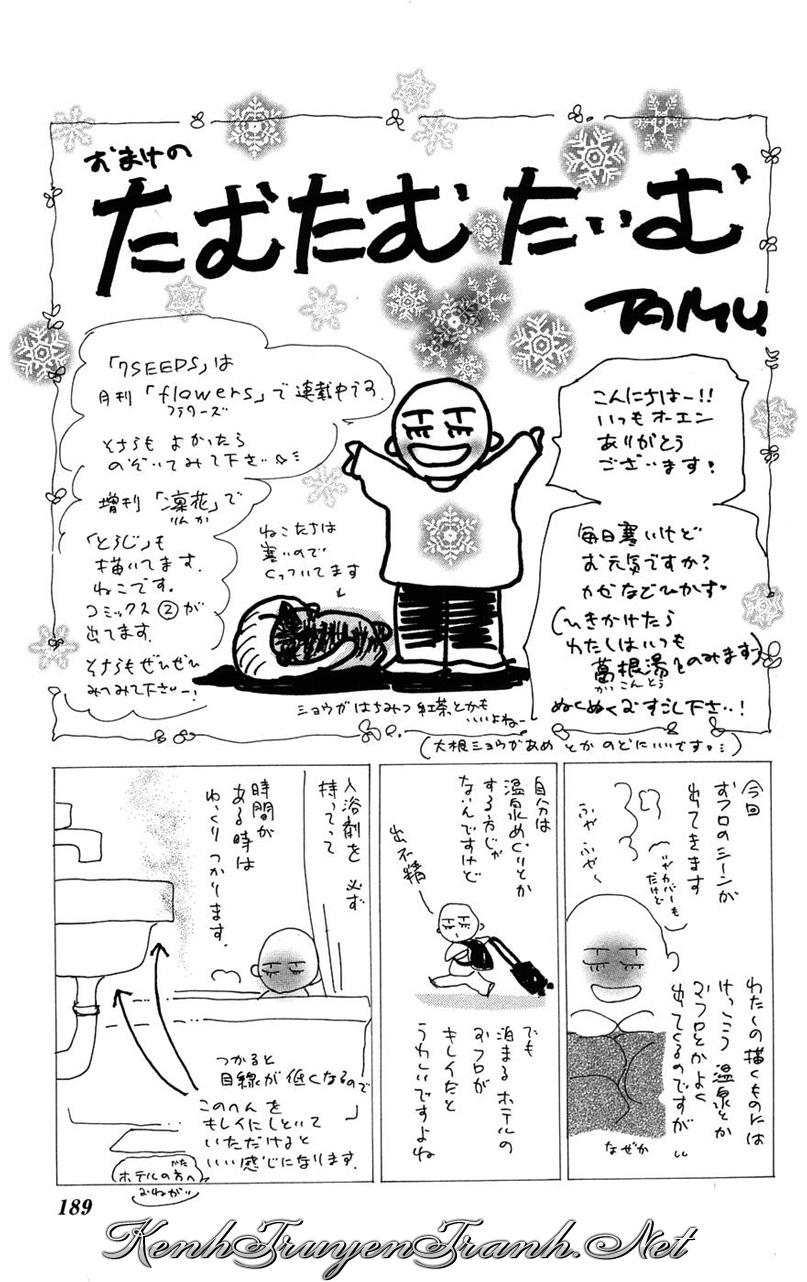 おまけの
たむたむたいむ
TAMU.
こんにちはー!!
いつもオーエン
ありがとう
ございます!
毎日寒いけど
お元気ですか?
カゼなどひかず
(ひきかけたら
わたしはいつも
葛根湯をのみます)
かっこんとう
ぬくぬくおすごし下さい!
「7SEEDS」は
月刊「flowers」で連載中です。
フラワーズ
そちらも よかったら
のぞいてみて下さい
増刊「凛花」で
りんか
「とらじ」も
描いてます。
ねこです。
コミックス②が
出てます。
そちらもぜひぜひ
みてみて下さいー!
ねこたちは
寒いので
くっついてます
ショウガはちみつ紅茶とかも
いいよねー
(大根ショウガあめ とか のどにいいです。)
今回
おフロのシーンが
出てきます
表紙カバーも
だけど
ふや ふや〜
わたしの描くものには
けっこう 温泉とか
おフロとかよく
出てくるのですが
なぜか
自分は
温泉めぐりとか
する方じゃ
ないんですけど
出不精
でも
泊まるホテルの
おフロが
キレイだと
うれしいですよね
入浴剤を 必ず
持ってって
時間が
ある時は
ゆっくり つかります。
つかると
目線が低くなるので
このへんを
キレイにしといて
いただけると
いい感じになります。
ホテルの方へ
がた
おねがい
189
KenhTruyenTranh.Net